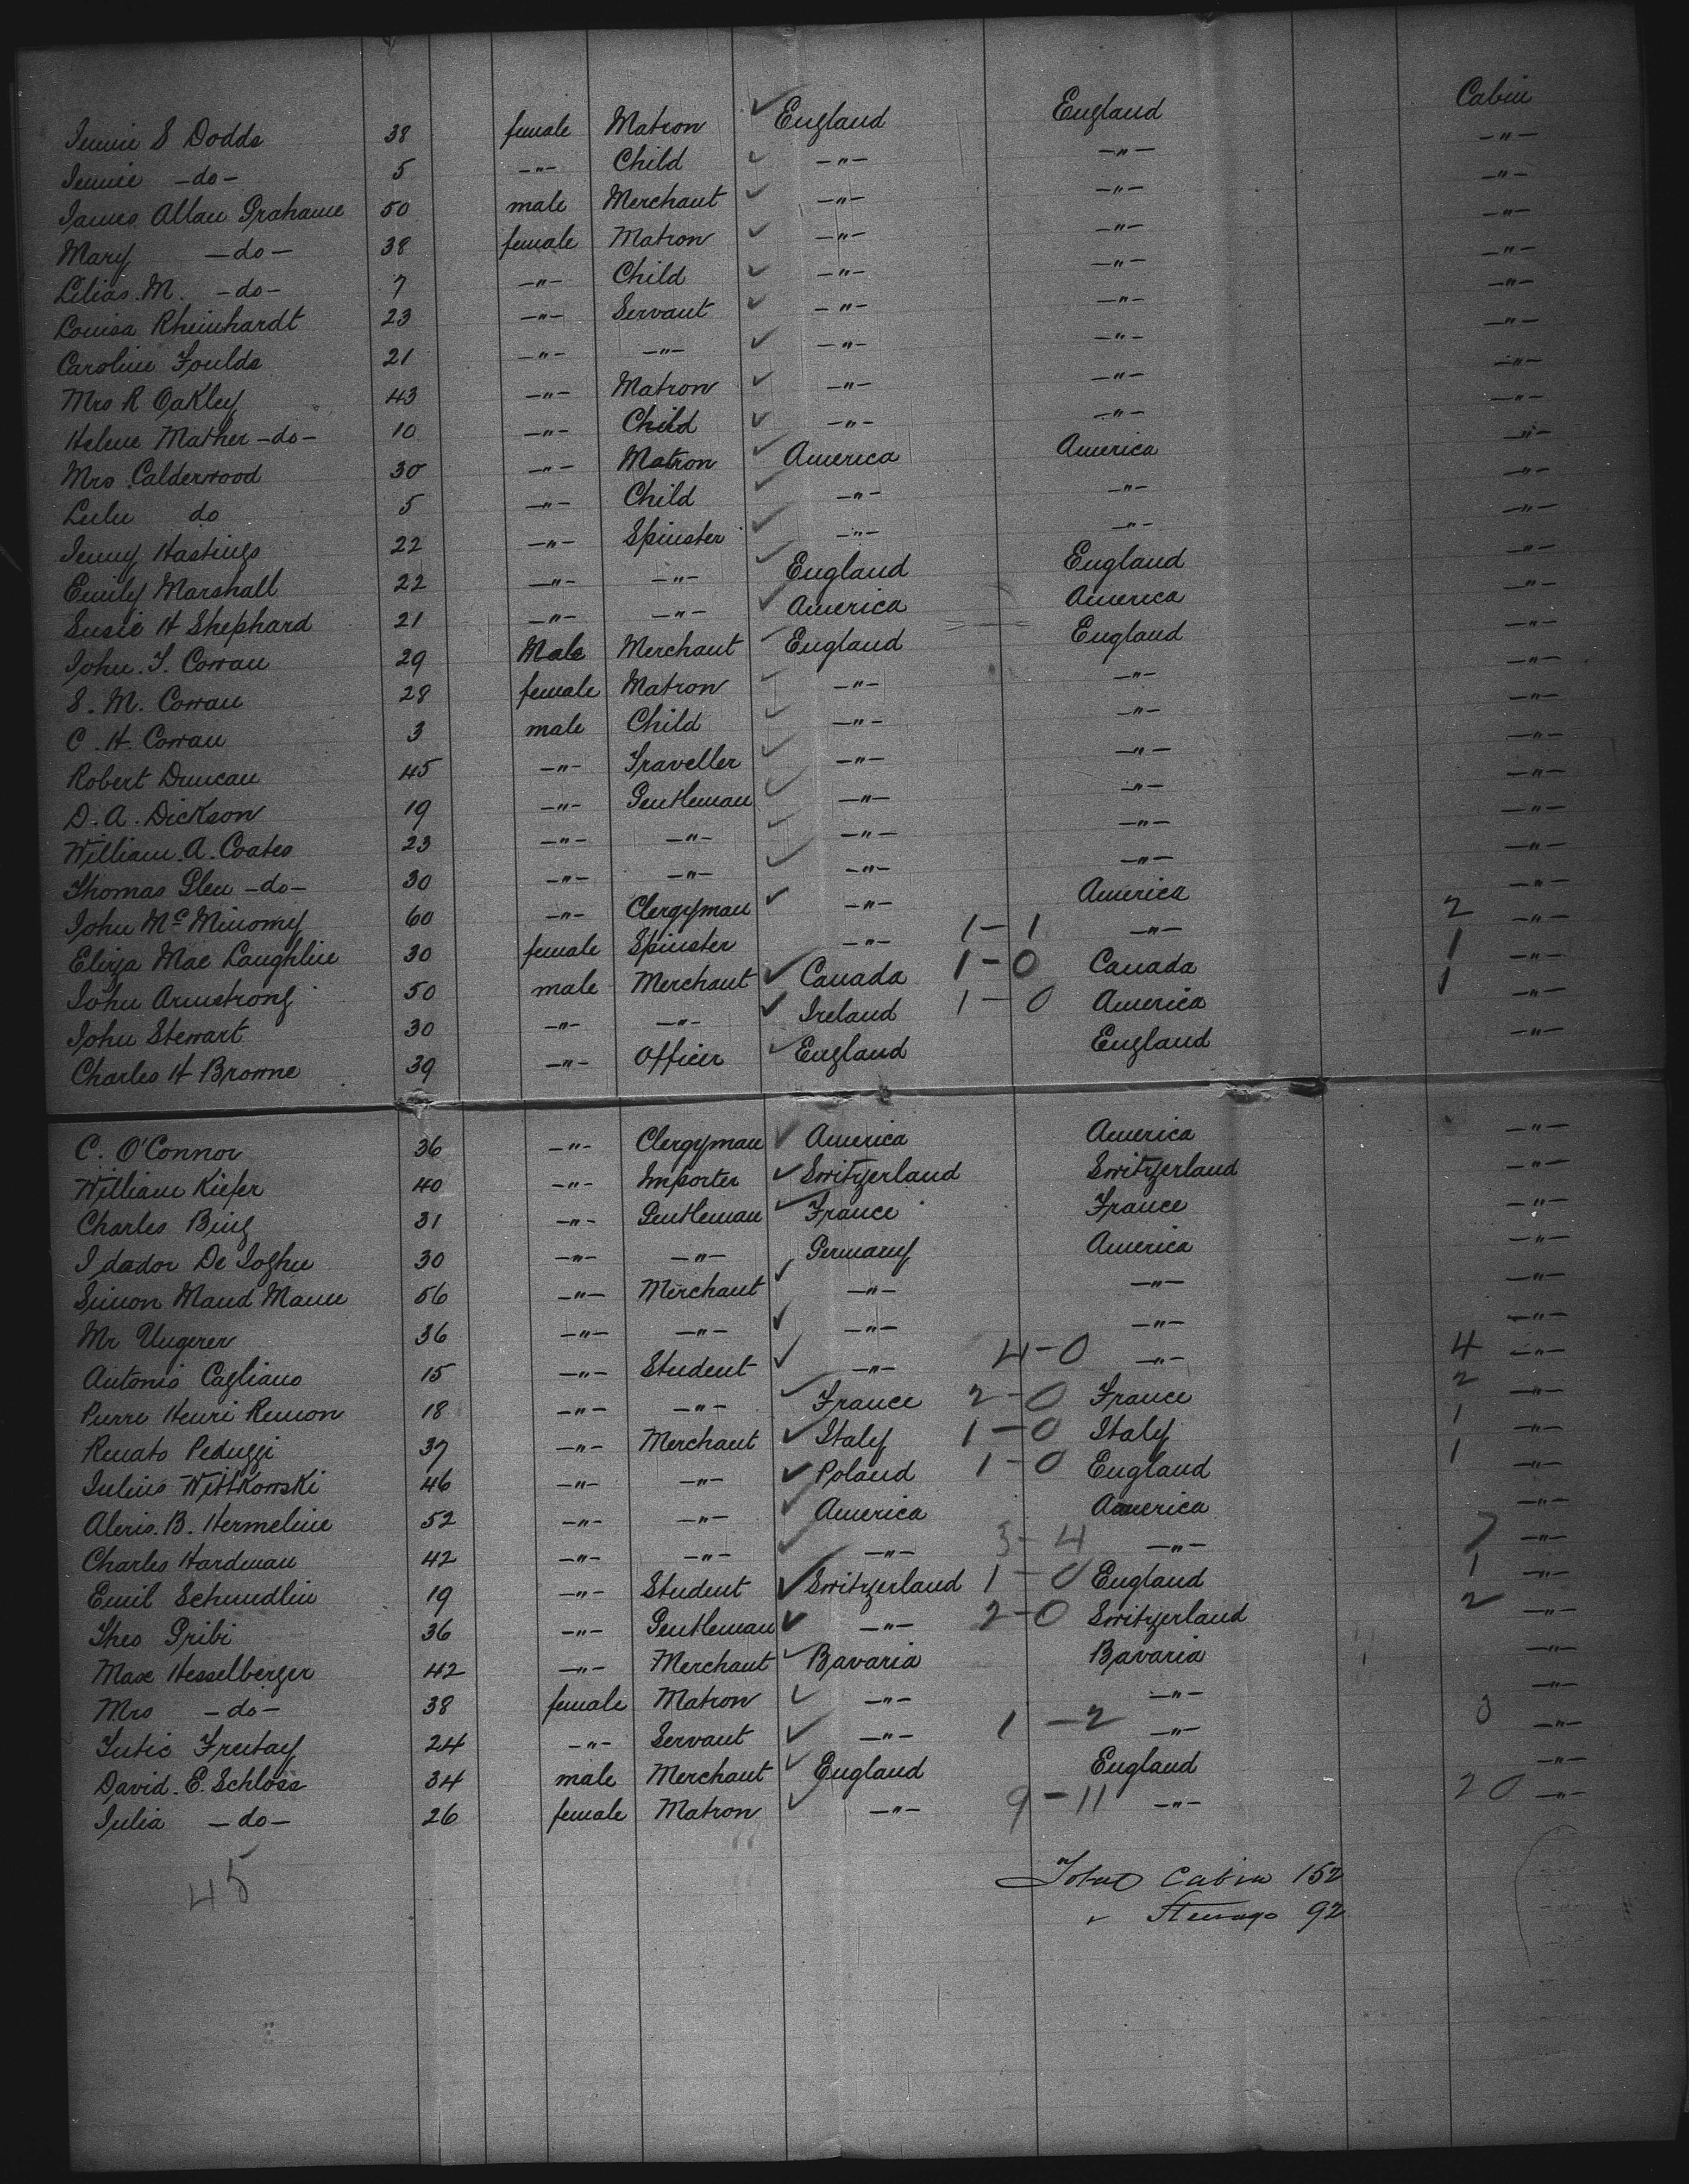 Cabin
Jennie S Dodds 38 female Matron ✓ England England —"—
Jennie —do— 5 —"— Child ✓ —"— —"— —"—
James Allan Grahame 50 male Merchant ✓ —"— —"— —"—
Mary —do— 38 female Matron ✓ —"— —"— —"—
Lilias. M. —do— 7 —"— Child ✓ —"— —"— —"—
Louisa Rheinhardt 23 —"— Servant ✓ —"— —"— —"—
Caroline Foulds 21 —"— —"— ✓ —"— —"— —"—
Mrs R Oakley 43 —"— Matron ✓ —"— —"— —"—
Helene Mather —do— 10 —"— Child ✓ —"— —"— —"—
Mrs Calderwood 30 —"— Matron ✓ America America —"—
Lulu do 5 —"— Child ✓ —"— —"— —"—
Jenny Hastings 22 —"— Spinster ✓ —"— —"— —"—
Emily Marshall 22 —"— —"— ✓ England England —"—
Susie H Shephard 21 —"— —"— ✓ America America —"—
John. T. Corran 29 Male Merchant ✓ England England —"—
S. M. Corran 28 female Matron ✓ —"— —"— —"—
C. H. Corran 3 male Child ✓ —"— —"— —"—
Robert Duncan 45 —"— Traveller ✓ —"— —"— —"—
D. A. Dickson 19 —"— Gentleman ✓ —"— —"— —"—
William. A. Coates 23 —"— —"— ✓ —"— —"— —"—
Thomas Glen —do— 30 —"— —"— ✓ —"— —"— —"—
John Mc 60 —"— Clergyman ✓ —"— America —"—
Eliza Mac Laughlin 30 female Spinster —"— 1 - 1 —"— 2 —"—
John Armstrong 50 male Merchant ✓ Canada 1 - 0 Canada 1 —"—
John Stewart 30 —"— —"— ✓ Ireland 1 - 0 America 1 —"—
Charles H Browne 39 —"— Officer ✓ England England —"—
C. O'Connor 36 —"— Clergyman ✓ America America —"—
William Kiefer 40 —"— Importer ✓ Switzerland Switzerland —"—
Charles Bing 31 —"— Gentleman ✓ France France —"—
Idador De 30 —"— —"— ✓ Germany America —"—
Simon Maud Mann 56 —"— Merchant ✓ —"— —"— —"—
Mr Ungerer 36 —"— —"— ✓ —"— —"— —"—
Antonio Cagliano 15 —"— Student ✓ —"— 4 - 0 —"— 4 —"—
Pierre Henri Remon 18 —"— —"— ✓ France 2 - 0 France 2 —"—
Renato Peduzzi 37 —"— Merchant ✓ Italy 1 - 0 Italy 1 —"—
Julius Wittkowski 46 —"— —"— ✓ Poland 1 - 0 England 1 —"—
Alexis. B. Hermeline 52 —"— —"— ✓ America America —"—
Charles Hardman 42 —"— —"— ✓ —"— 3 - 4 —"— 7 —"—
Emil Schmidlin 19 —"— Student ✓ Switzerland 1 - 0 England 1 —"—
Theo Gribi 36 —"— Gentleman ✓ —"— 2 - 0 Switzerland 2 —"—
Max Hesselberger 42 —"— Merchant ✓ Bavaria Bavaria —"—
Mrs —do— 38 female Matron ✓ —"— —"— —"—
Freitag 24 —"— Servant ✓ —"— 1 - 2 —"— 3 —"—
David. E. Schloss 34 male Merchant ✓ England England —"—
Julia —do— 26 female Matron ✓ —"— 9 - 11 —"— 20 —"—
45
Total Cabin 152
" Steerage 92